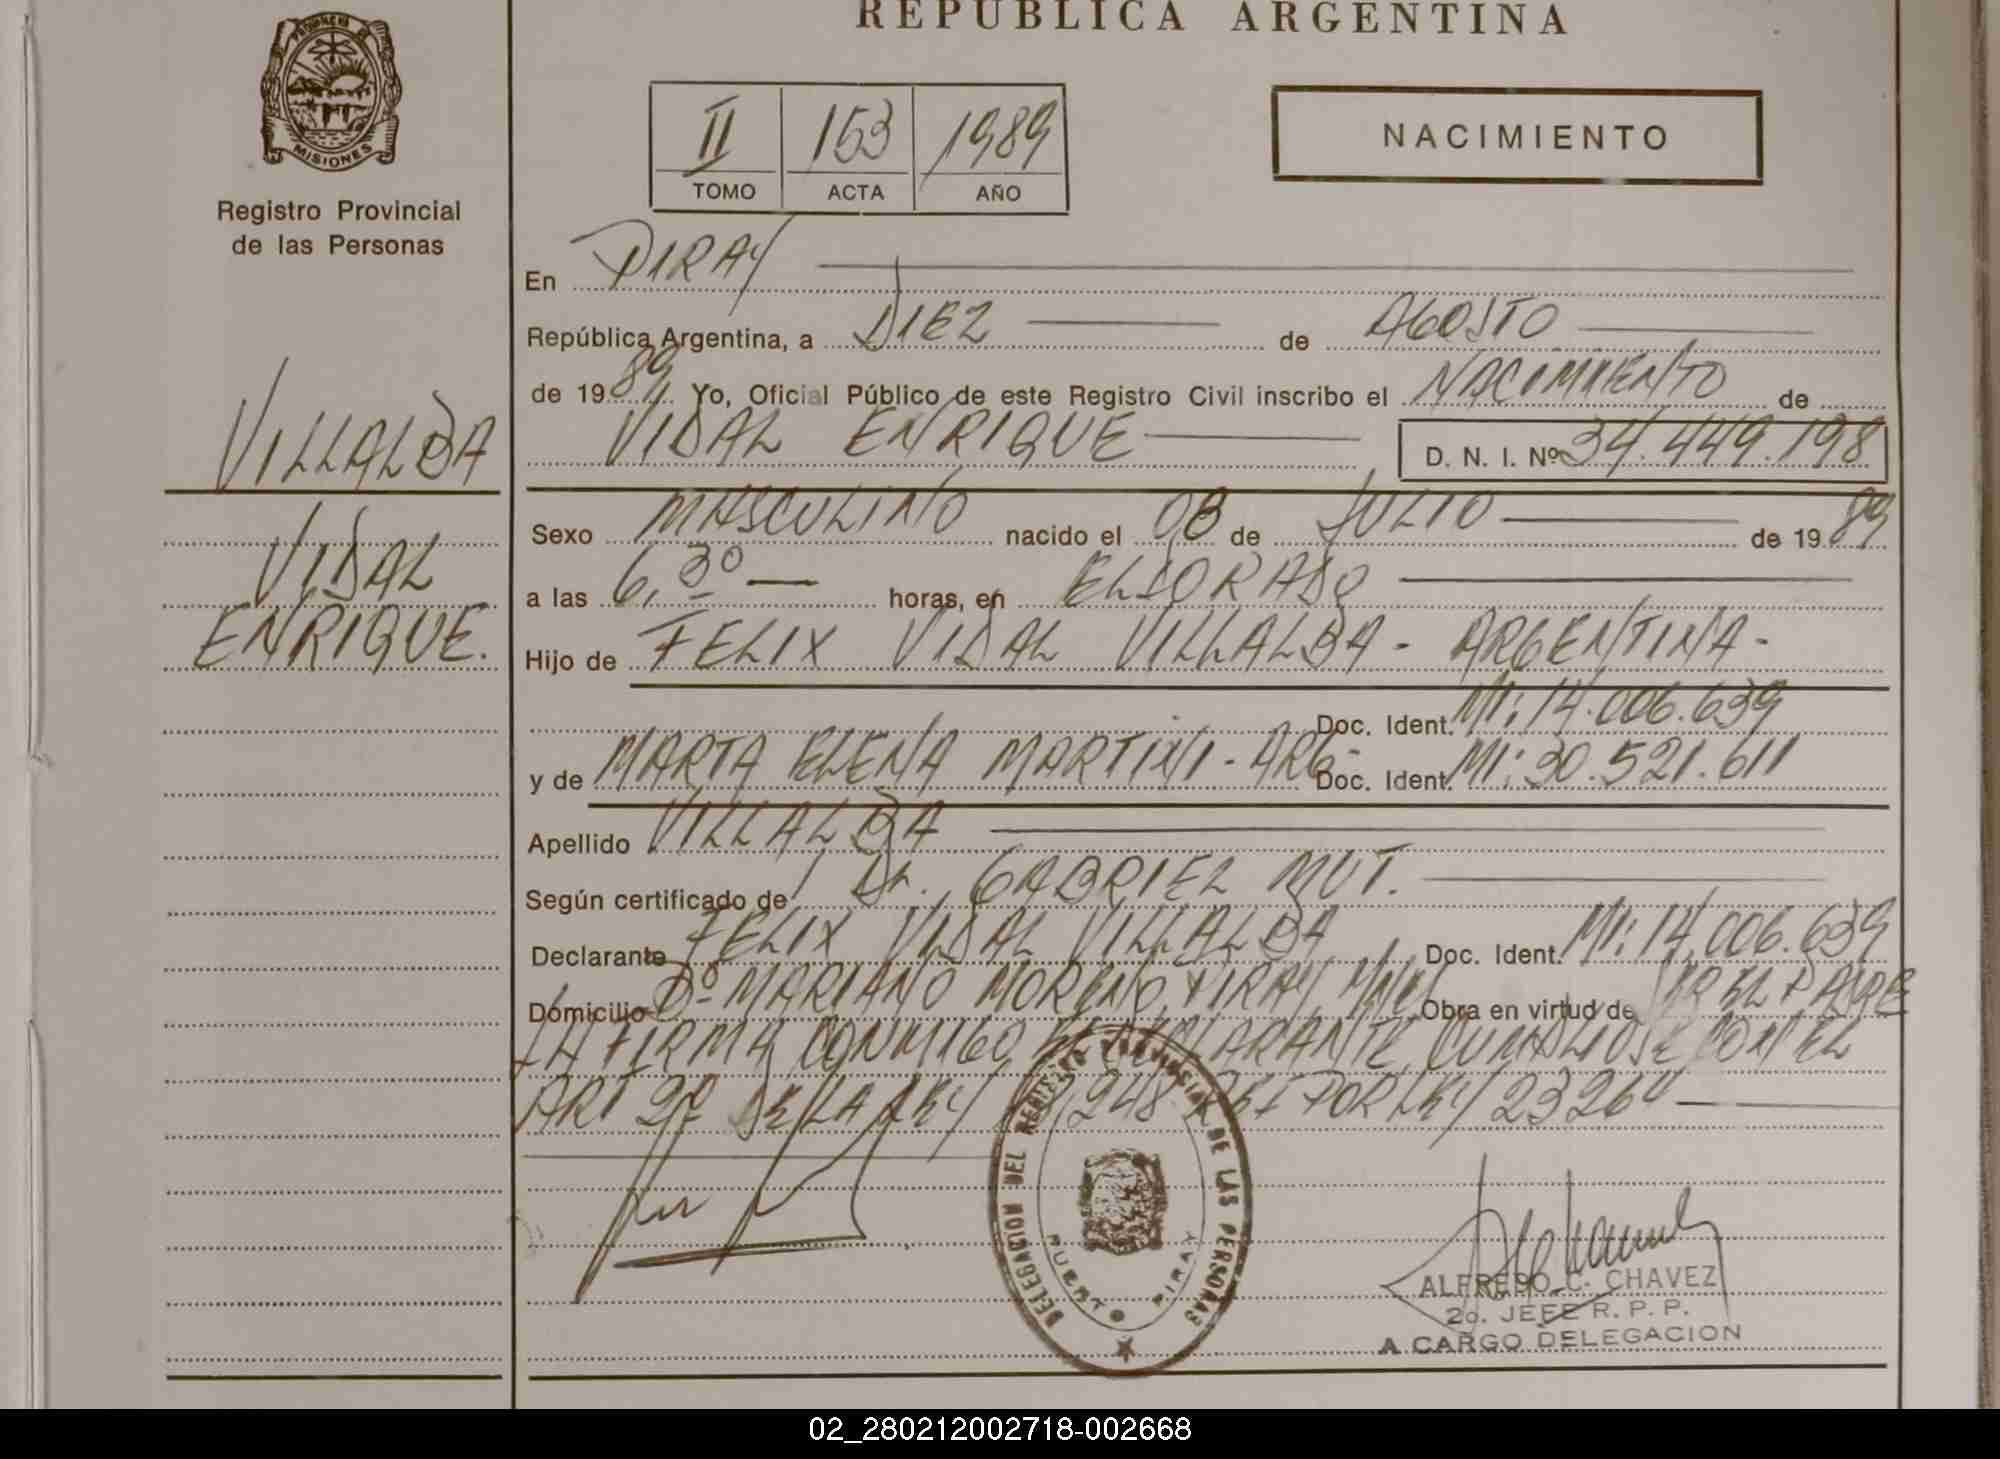 REPUBLICA ARGENTINA
PROVINCIA DE
MISIONES
Registro Provincial
de las Personas
II 153 1989
TOMO ACTA AÑO
NACIMIENTO
En PIRAY
República Argentina, a DIEZ de AGOSTO
de 1989. Yo, Oficial Público de este Registro Civil inscribo el NACIMIENTO de
VIDAL ENRIQUE D. N. I. Nº 34.449.198
VILLALBA
VIDAL
ENRIQUE.
Sexo MASCULINO nacido el 08 de JULIO de 1989
a las 6,30 horas, en ELDORADO
Hijo de FELIX VIDAL VILLALBA - ARGENTINA -
Doc. Ident. MI: 14.006.639
y de MARTA ELENA MARTINI - ARG- Doc. Ident. MI: 30.521.611
Apellido VILLALBA
Según certificado de Dr. GABRIEL MUT.
Declarante FELIX VIDAL VILLALBA Doc. Ident. MI: 14.006.639
Domicilio Dº MARIANO MORENO, PIRAY MNES Obra en virtud de SER EL PADRE
LA FIRMA CONMIGO EL DECLARANTE. CUMPLIOSE CON EL
ART 37 DE LA LEY 248 POR LEY 23264
DELEGACION DEL REGISTRO PROVINCIAL DE LAS PERSONAS
PUERTO PIRAY
ALFREDO C. CHAVEZ
2o. JEFE R. P. P.
A CARGO DELEGACION
02_280212002718-002668